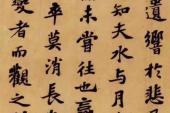 遺響於悲
知夫水與月
未嘗往也贏
卒莫消長
變者而觀之